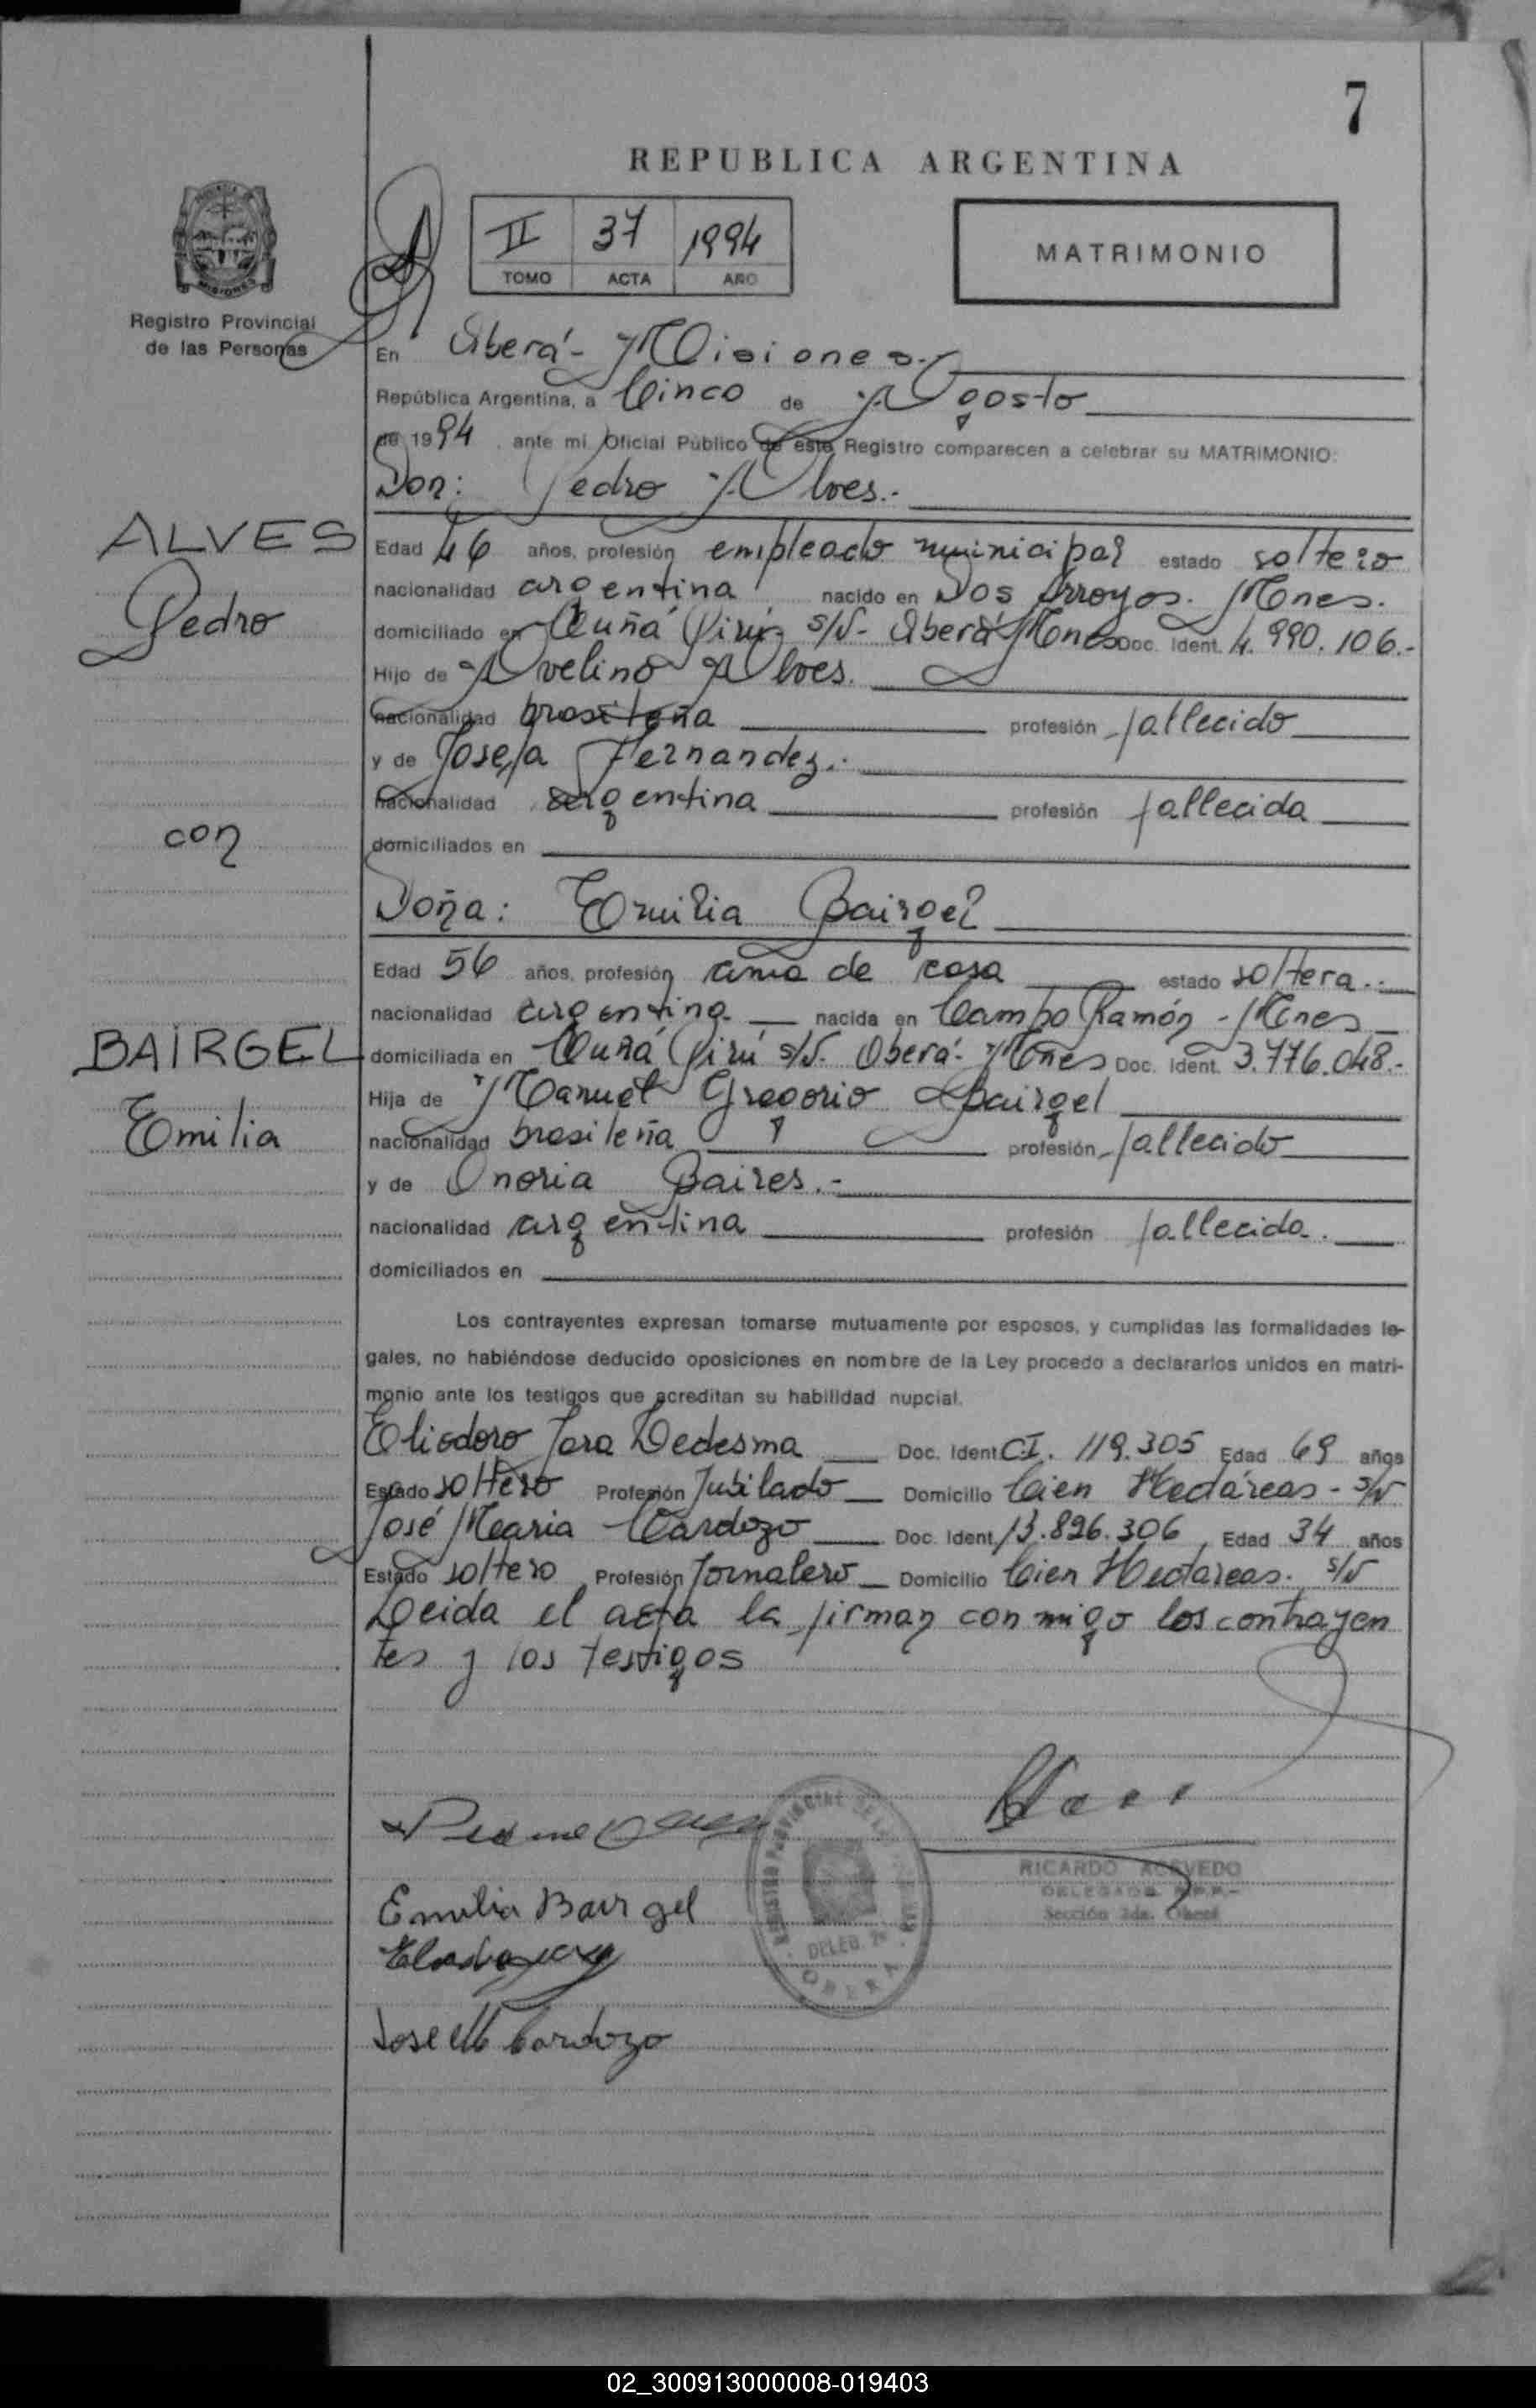 7
REPUBLICA ARGENTINA
II 37 1994
TOMO ACTA AÑO
MATRIMONIO
Registro Provincial
de las Personas
En Oberá - Misiones.-
República Argentina, a Cinco de Agosto
de 1994, ante mi Oficial Público de este Registro comparecen a celebrar su MATRIMONIO:
Don: Pedro Alves.-
ALVES
Pedro
Edad 46 años, profesión empleado municipal estado soltero
nacionalidad argentina nacido en Dos Arroyos. Mnes.
domiciliado en Cuñá Pirú s/N- Oberá Mnes Doc. Ident. 4.990.106.-
Hijo de Avelino Alves.
nacionalidad brasileña profesión fallecido
y de Josefa Fernandez.-
nacionalidad argentina profesión fallecida
con
domiciliados en
Doña: Emilia Bairgel
Edad 56 años, profesión ama de casa estado soltera.-
nacionalidad argentina nacida en Campo Ramón - Mnes
BAIRGEL
Emilia
domiciliada en Cuñá Pirú s/N. Oberá - Mnes Doc. Ident. 3.776.048.-
Hija de Manuel Gregorio Bairgel
nacionalidad brasileña profesión fallecido
y de Onoria Baires.-
nacionalidad argentina profesión fallecida.
domiciliados en
Los contrayentes expresan tomarse mutuamente por esposos, y cumplidas las formalidades le-
gales, no habiéndose deducido oposiciones en nombre de la Ley procedo a declararlos unidos en matri-
monio ante los testigos que acreditan su habilidad nupcial.
Eliodoro Jara Ledesma Doc. Ident. C.I. 119.305 Edad 69 años
Estado soltero Profesión Jubilado Domicilio Cien Hectáreas - s/N
José Maria Cardozo Doc. Ident. 13.826.306 Edad 34 años
Estado soltero Profesión Jornalero Domicilio Cien Hectareas. s/N
Leida el acta la firman conmigo los contrayen
tes y los testigos
RICARDO ACEVEDO
DELEGADO R.P.P.-
Sección 2da. Oberá
Emilia Bairgel
DELEG. 2ª
OBERA
Jose M Cardozo
02_300913000008-019403